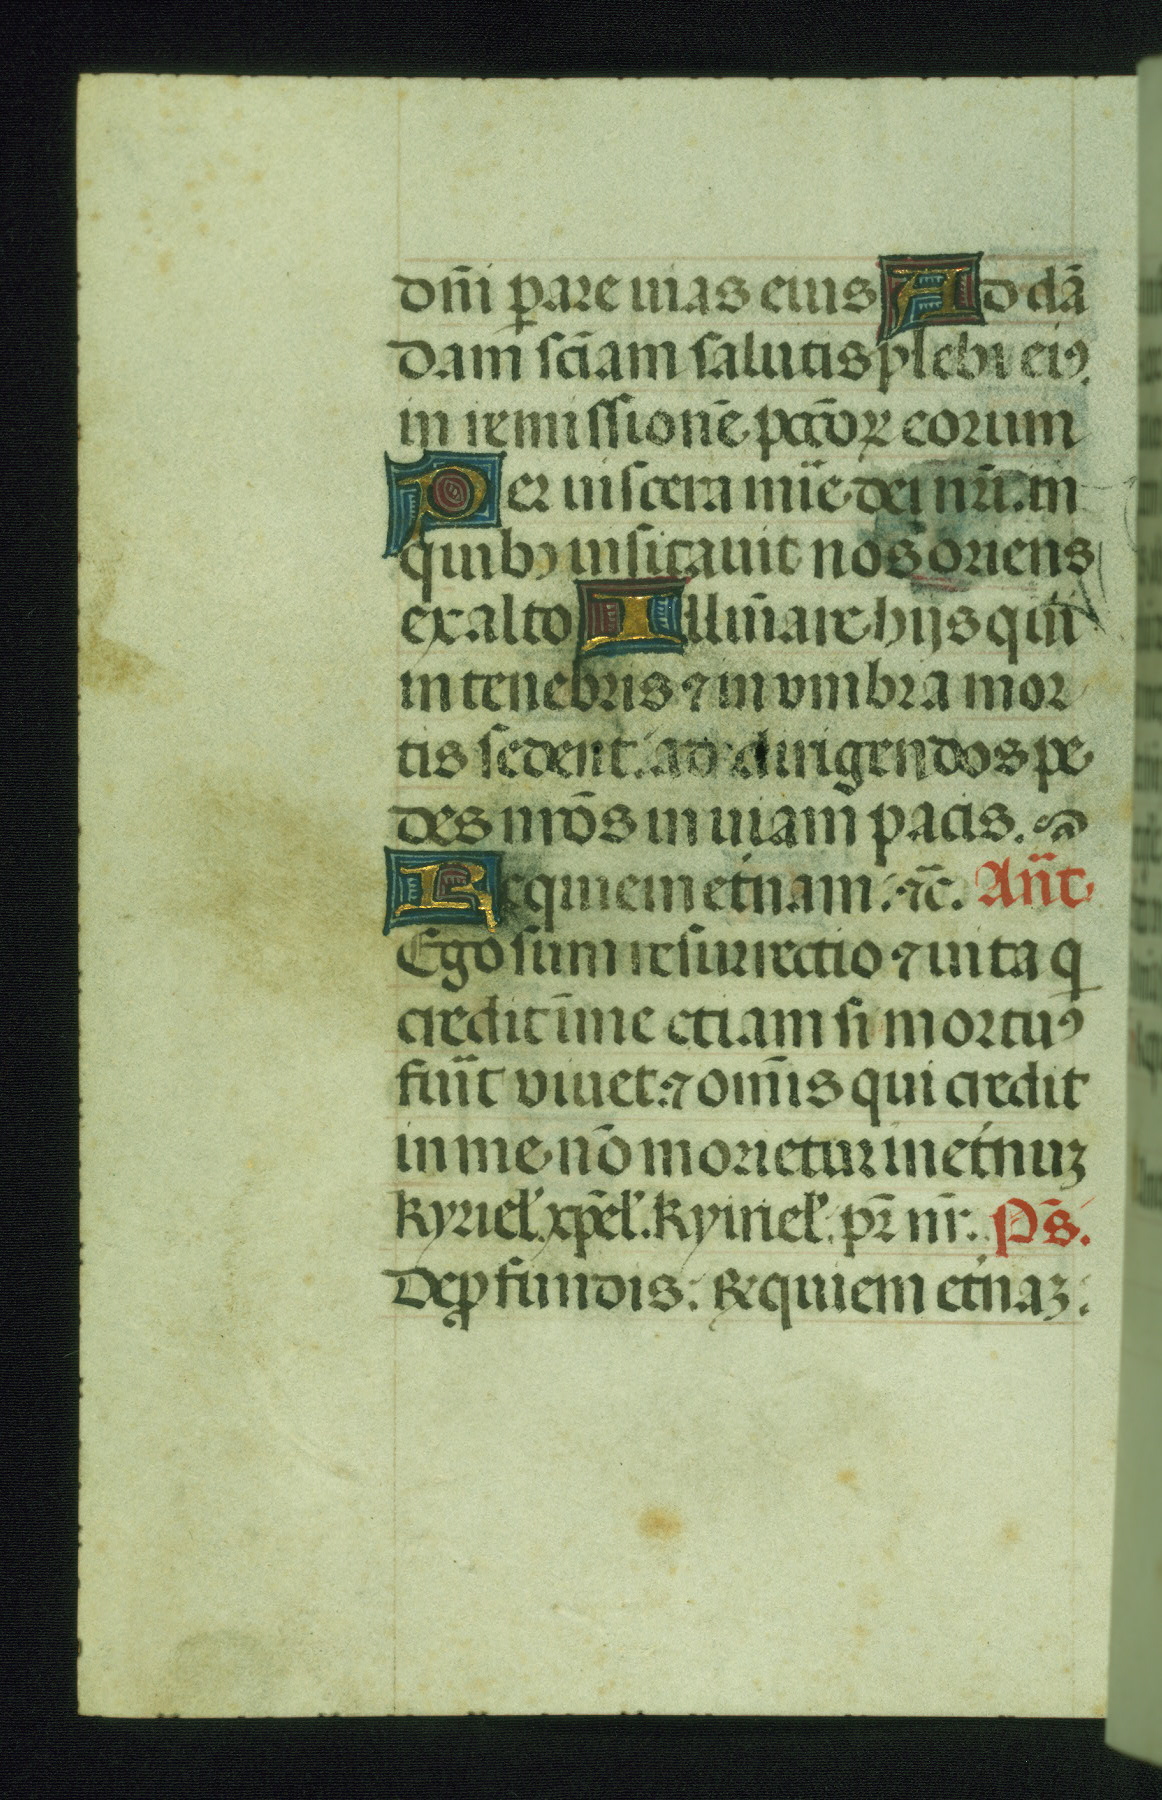 dn̄i p̱are uias eius Ad dā
dam sciam̄ salutis plebi eiꝰ.
in remissionē pctōꝝ eorum
Per uiscera mīe dei nr̄i. in
quibꝫ uisitauit nos oriens
ex alto Illūi̅are hijs qui
in tenebris ⁊ in vmbra mor
tis sedent. ad dirigendos pe
des nrōs in uiam pacis.
Requiem et̄nam. ⁊c̄. An̄t
Ego sum resurrectio ⁊ uita q̱
credit ī me etiam si mortuꝰ
fuīt viuet. ⁊ omīs qui credit
in me nō morietur in et̄nuꝫ
kyriel̓. xp̄el̓. kyiriel̓. pr̄ nr̄. Ps̄.
Deꝓfundis. Requiem et̄naꝫ.